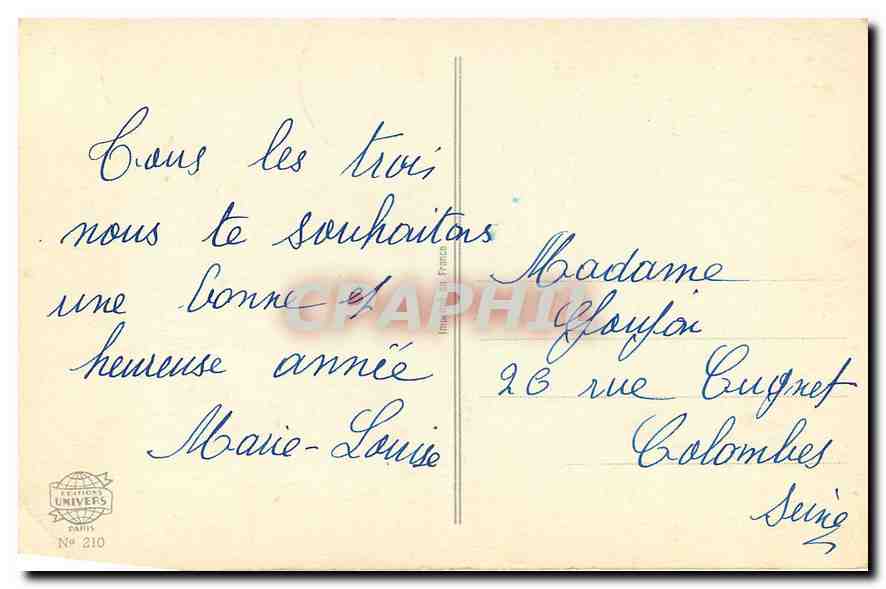 Tous les trois
nous te souhaitons
une bonne et
heureuse année
Marie-Louise
Madame
Goujon
26 rue Cugnet
Colombes
Seine
Imprimé en France
CPAPHIL
EDITIONS
UNIVERS
PARIS
Nº 210